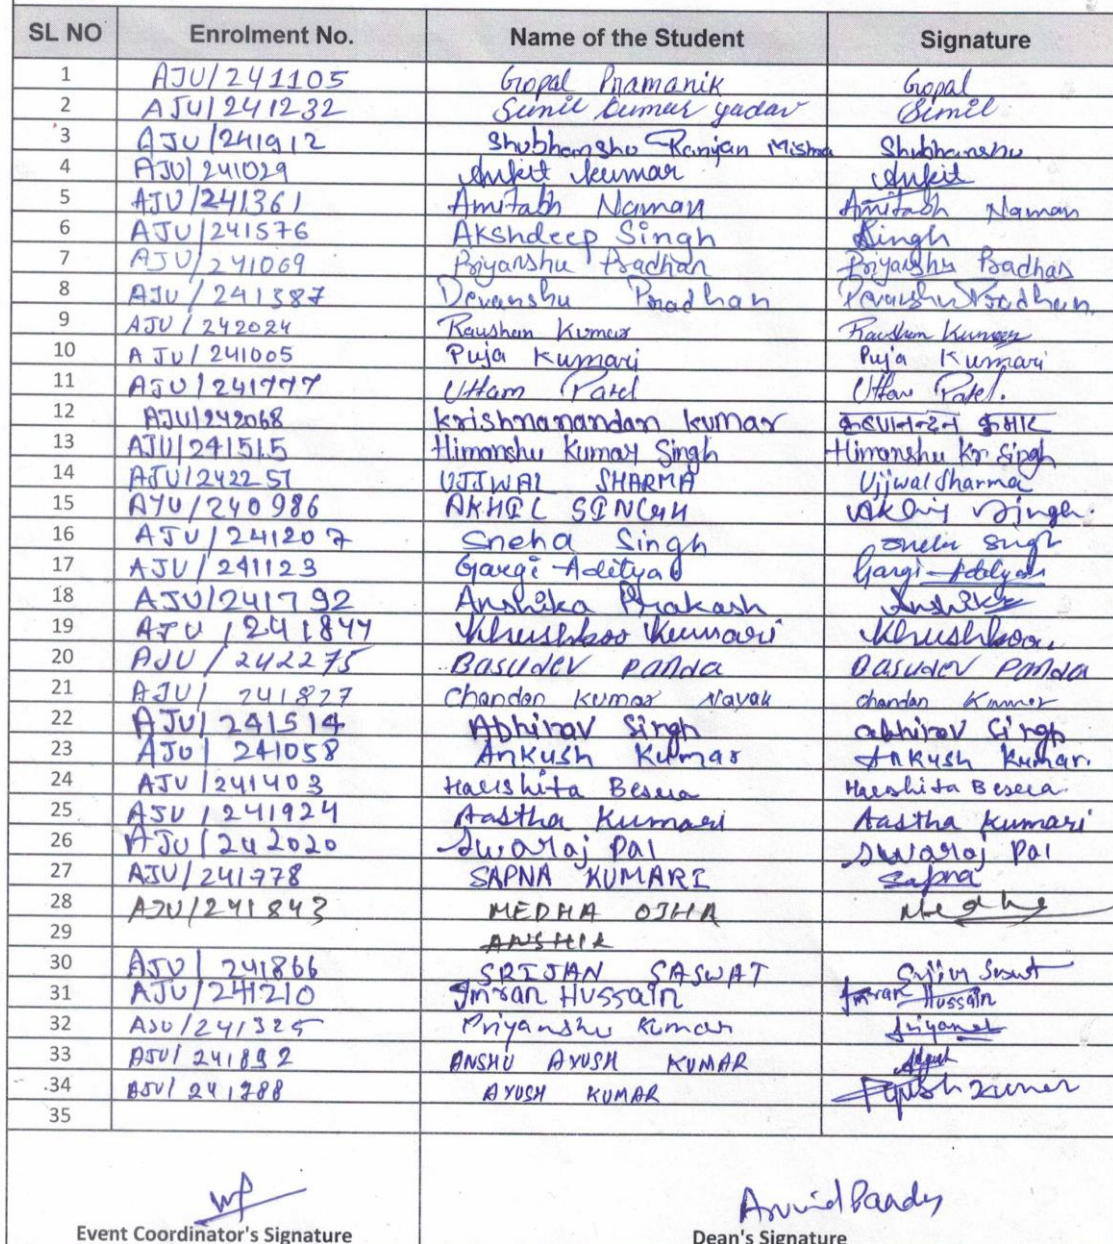 SL NO Enrolment No. Name of the Student Signature
1 AJU/241105 Gopal Pramanik Gopal
2 AJU/241232 Sunil Kumar yadav Sunil
3 AJU/241912 Shubhanshu Ranjan Mishra Shubhanshu
4 AJU/241029 Ankit kumar Ankit
5 AJU/241361 Amitabh Naman Amitabh Naman
6 AJU/241576 Akshdeep Singh Singh
7 AJU/241069 Priyanshu Pradhan Priyanshu Pradhan
8 AJU/241387 Devanshu Pradhan Devanshu Pradhan
9 AJU/242024 Raushan Kumar Raushan Kumar
10 AJU/241005 Puja Kumari Puja Kumari
11 AJU/241777 Uttam Patel Uttam Patel.
12 AJU/242068 krishnanandan kumar कृष्णानन्दन कुमार
13 AJU/241515 Himanshu Kumar Singh Himanshu Kr Singh
14 AJU/242257 UJJWAL SHARMA Ujjwal Sharma
15 AJU/240986 AKHIL SINGH Akhil Singh.
16 AJU/241207 Sneha Singh Sneha Singh
17 AJU/241123 Gargi Aditya Gargi Aditya
18 AJU/241792 Anshika Prakash Anshika
19 AJU/241844 Khushboo Kumari Khushboo.
20 AJU/242275 BASUDEV PANDA BASUDEV PANDA
21 AJU/241827 Chandan Kumar Nayak chandan Kumar
22 AJU/241514 Abhirav Singh abhirav Singh
23 AJU/241058 Ankush Kumar Ankush Kumar.
24 AJU/241403 Harshita Besera Harshita Besera.
25 AJU/241924 Aastha Kumari Aastha Kumari
26 AJU/242020 Swaraj Pal Swaraj Pal
27 AJU/241778 SAPNA KUMARI Sapna
28 AJU/241843 MEDHA OJHA Medha
29 ANSHIK
30 AJU/241866 SRIJAN SASWAT Srijan Saswat
31 AJU/241210 Imran Hussain Imran Hussain
32 AJU/241325 Priyanshu Kumar
33 AJU/241892 ANSHU AYUSH KUMAR
34 AJU/241788 AYUSH KUMAR Ayush Kumar
35
Arvind Pandey
Event Coordinator's Signature Dean's Signature